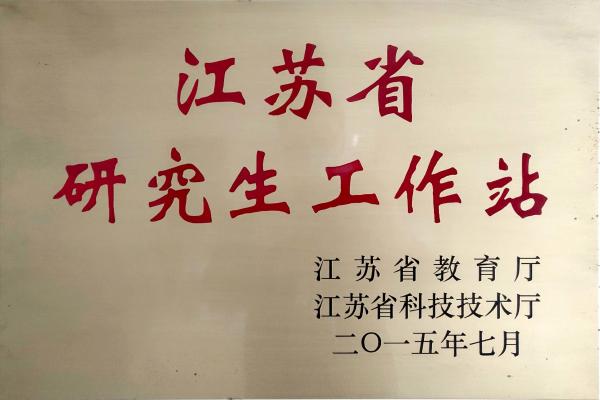 江苏省
研究生工作站
江苏省教育厅
江苏省科技技术厅
二〇一五年七月